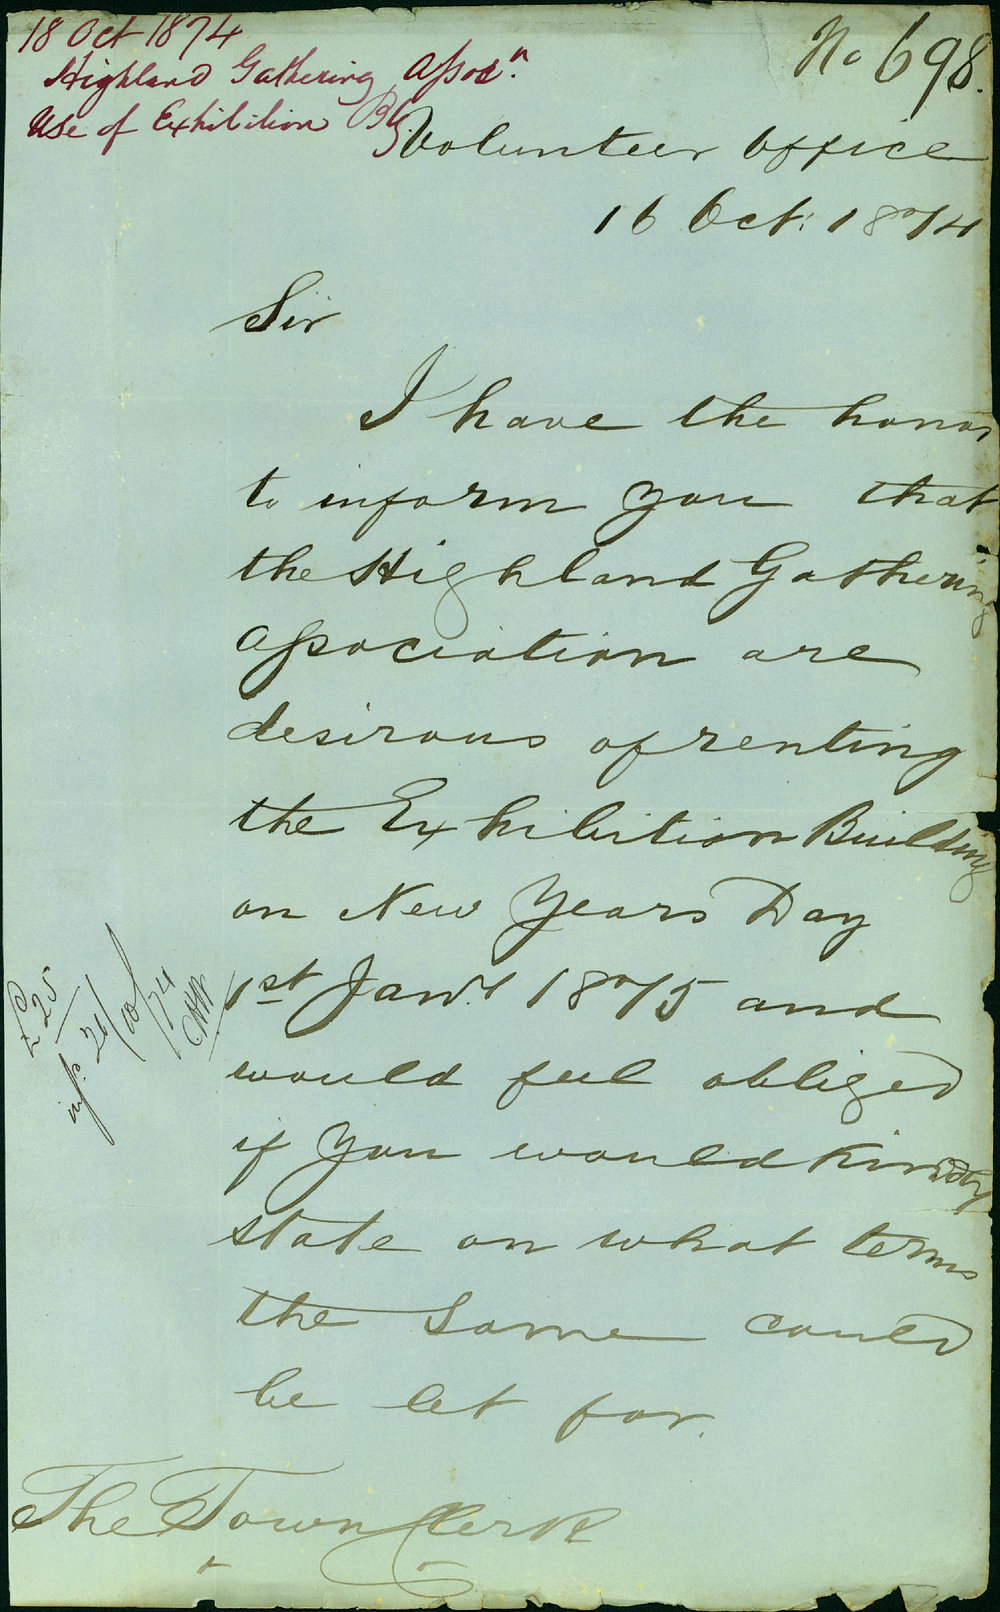 18 Oct 1874
Highland Gathering Assocn.
Use of Exhibition Bg.
No 698.
Volunteer Office
16 Oct: 1874
Sir
I have the honor
to inform you that
the Highland Gathering
Association are
desirous of renting
the Exhibition Building
on New Years Day
1st Jany 1875 and
would feel obliged
if you would kindly
state on what terms
the same could
be let for.
£25
21/10/74
The Town Clerk